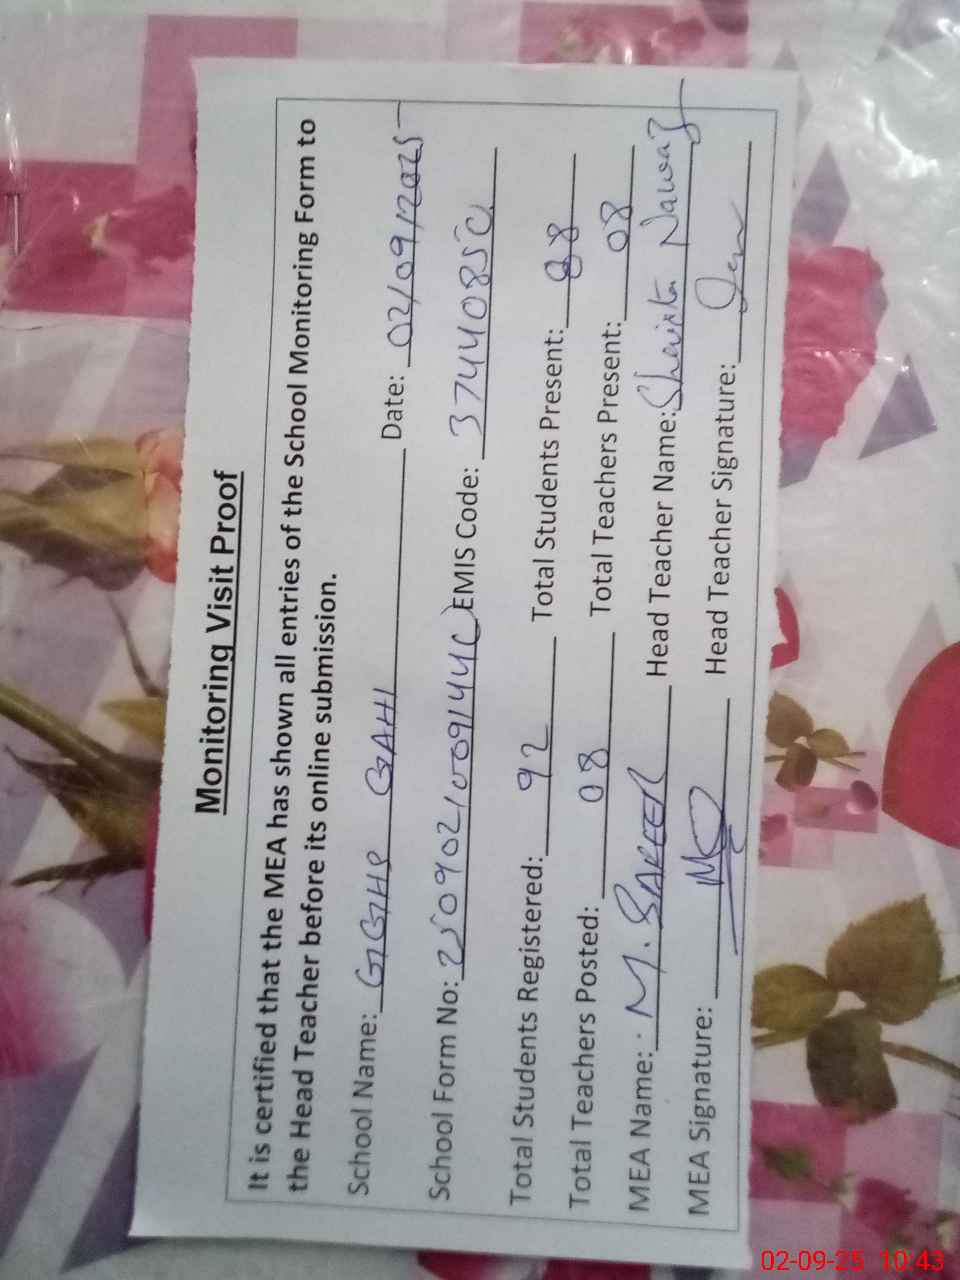 Monitoring Visit Proof
It is certified that the MEA has shown all entries of the School Monitoring Form to
the Head Teacher before its online submission.
School Name: GGHS GAHI Date: 02/09/2025
School Form No: EMIS Code: 37440850
Total Students Registered: 92 Total Students Present: 88
Total Teachers Posted: 08 Total Teachers Present: 08
MEA Name: M. Head Teacher Name: Shaista Nawaz
MEA Signature: Head Teacher Signature:
02-09-25 10:43